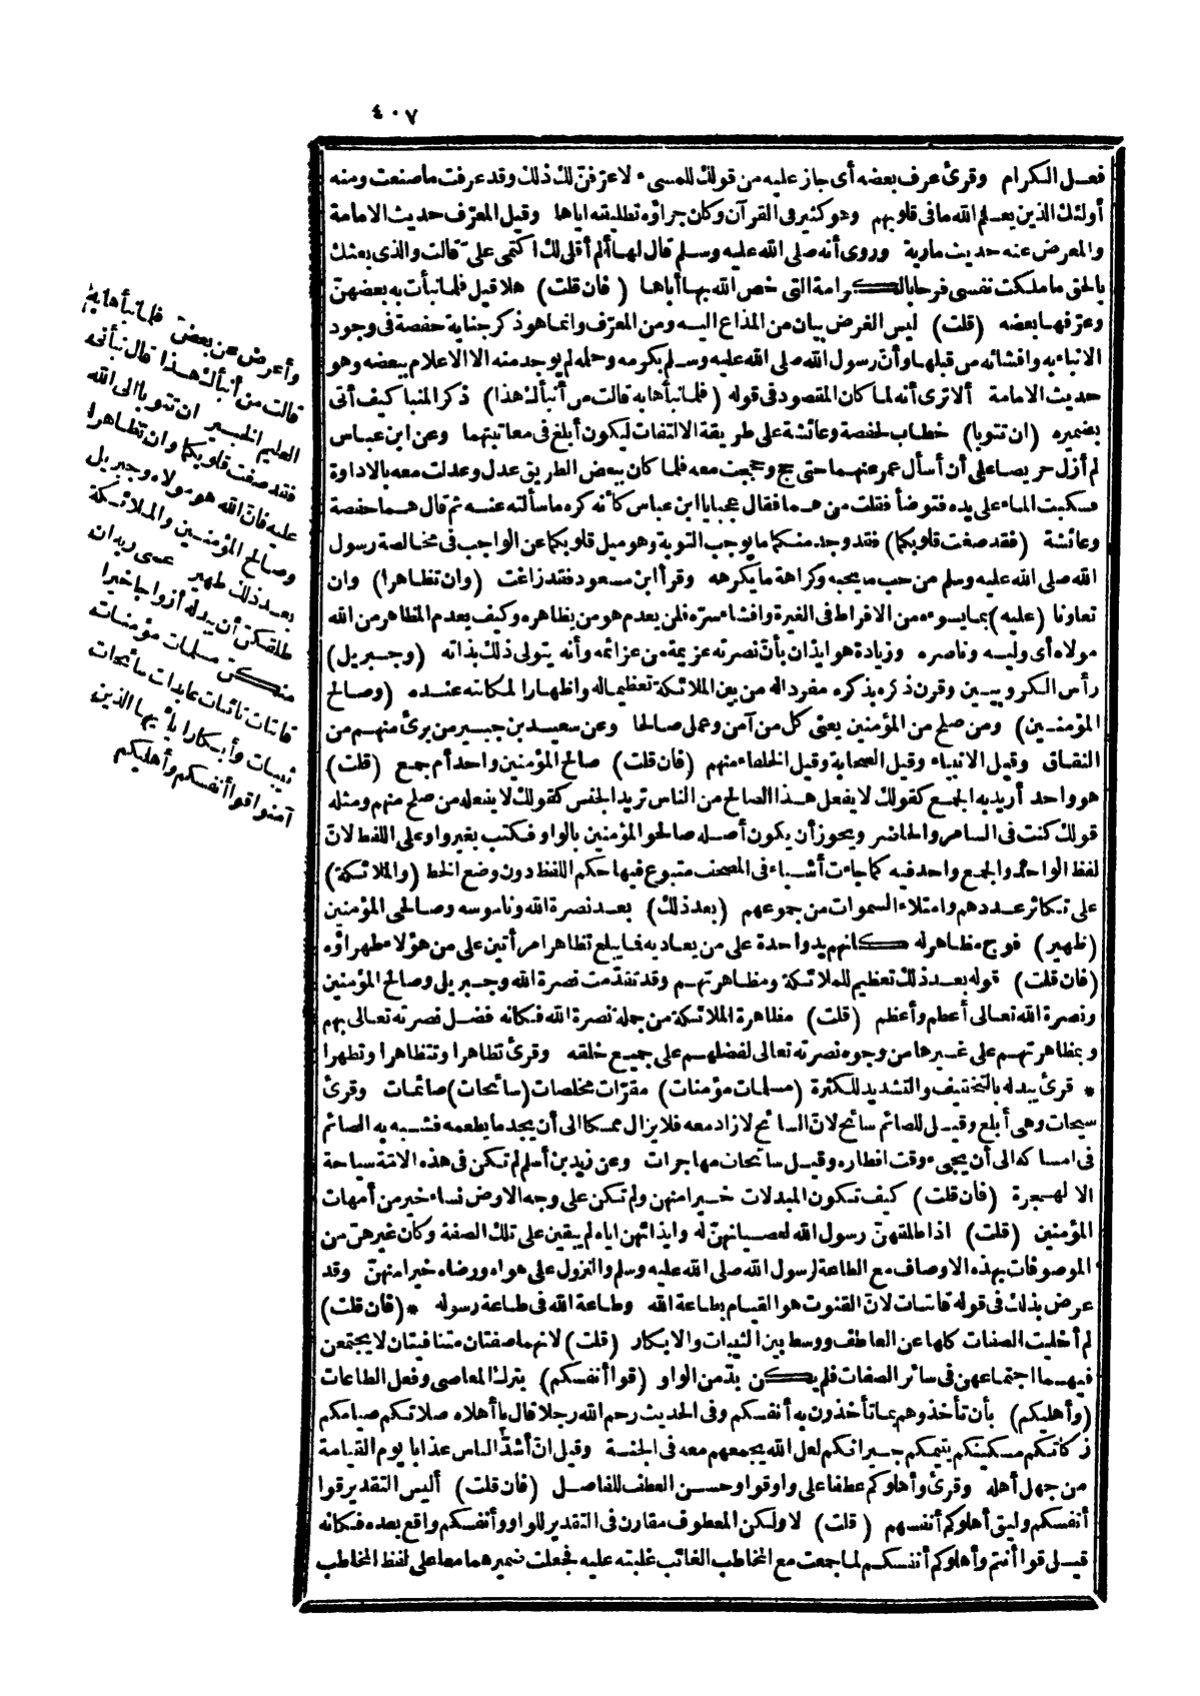 ٤٠٧
فعل الكرام وقرئ عرف بعضه أى جاز عليه من قولك للمسىء لاعرّفنّ لك ذلك وقد عرفت ما صنعت ومنه
أولئك الذين يعلم الله ما فى قلوبهم وهو كثير فى القرآن وكان جزاؤه تطليقه اياها وقيل المعرّف حديث الامامة
والمعرض عنه حديث مارية وروى أنه صلى الله عليه وسلم قال لها ألم أقل لك اكتمى علىّ قالت والذى بعثك
بالحق ما ملكت نفسى فرحا بالكرامة التى خص الله بها أباها (فان قلت) هلا قيل فلما نبأت به بعضهنّ
وعرّفها بعضه (قلت) ليس الغرض بيان من المذاع اليه ومن المعرّف وانما هو ذكر جناية حفصة فى وجود
الانباء به وافشائه من قبلها وأنّ رسول الله صلى الله عليه وسلم بكرمه وحمله لم يوجد منه الا الاعلام ببعضه وهو
حديث الامامة ألا ترى أنه لما كان المقصود فى قوله (فلما نبأها به قالت من أنبأك هذا) ذكر المنبا كيف أتى
بضميره (ان تتوبا) خطاب لحفصة وعائشة على طريقة الالتفات ليكون أبلغ فى معاتبتهما وعن ابن عباس
لم أزل حريصا على أن أسأل عمر عنهما حتى حج وحججت معه فلما كان ببعض الطريق عدل وعدلت معه بالاداوة
فسكبت الماء على يده فتوضأ فقلت من هما فقال عجبا يا ابن عباس كأنه كره ما سألته عنه ثم قال هما حفصة
وعائشة (فقد صغت قلوبكما) فقد وجد منكما ما يوجب التوبة وهو ميل قلوبكما عن الواجب فى مخالصة رسول
الله صلى الله عليه وسلم من حب ما يحبه وكراهة ما يكرهه وقرأ ابن مسعود فقد زاغت (وان تظاهرا) وان
تعاونا (عليه) بما يسوءه من الافراط فى الغيرة وافشاء سرّه فلن يعدم هو من يظاهره وكيف يعدم المظاهر من الله
مولاه أى وليه وناصره وزيادة هو ايذان بأنّ نصرته عزيمة من عزائمه وأنه يتولى ذلك بذاته (وجبريل)
رأس الكروبيين وقرن ذكره بذكره مفردا له من بين الملائكة تعظيما له واظهارا لمكانته عنده (وصالح
المؤمنين) ومن صلح من المؤمنين يعنى كل من آمن وعمل صالحا وعن سعيد بن جبير من برئ منهم من
النفاق وقيل الانبياء وقيل الصحابة وقيل الخلفاء منهم (فان قلت) صالح المؤمنين واحد أم جمع (قلت)
هو واحد أريد به الجمع كقولك لا يفعل هذا الصالح من الناس تريد الجنس كقولك لا يفعله من صلح منهم ومثله
قولك كنت فى السامر والحاضر ويجوز أن يكون أصله صالحو المؤمنين بالواو فكتب بغير واو على اللفظ لانّ
لفظ الواحد والجمع واحد فيه كما جاءت أشياء فى المصحف متبوع فيها حكم اللفظ دون وضع الخط (والملائكة)
على تكاثر عددهم وامتلاء السموات من جموعهم (بعد ذلك) بعد نصرة الله وناموسه وصالحى المؤمنين
(ظهير) فوج مظاهر له كأنهم يد واحدة على من يعاديه فما يبلغ تظاهر امرأتين على من هؤلاء ظهراؤه
(فان قلت) قوله بعد ذلك تعظيم للملائكة ومظاهرتهم وقد تقدّمت نصرة الله وجبريل وصالح المؤمنين
ونصرة الله تعالى أعظم وأعظم (قلت) مظاهرة الملائكة من جملة نصرة الله فكأنه فضل نصرته تعالى بهم
وبمظاهرتهم على غيرها من وجوه نصرته تعالى لفضلهم على جميع خلقه وقرئ تظاهرا وتتظاهرا وتظهرا
* قرئ يبدله بالتخفيف والتشديد للكثرة (مسلمات مؤمنات) مقرّات مخلصات (سائحات) صائمات وقرئ
سيحات وهى أبلغ وقيل للصائم سائح لانّ السائح لا زاد معه فلا يزال ممسكا الى أن يجد ما يطعمه فشبه به الصائم
فى امساكه الى أن يجىء وقت افطاره وقيل سائحات مهاجرات وعن زيد بن أسلم لم تكن فى هذه الامّة سياحة
الا الهجرة (فان قلت) كيف تكون المبدلات خيرا منهن ولم تكن على وجه الارض نساء خير من أمهات
المؤمنين (قلت) اذا طلقهنّ رسول الله لعصيانهنّ له وايذائهن اياه لم يبقين على تلك الصفة وكان غيرهنّ من
الموصوفات بهذه الاوصاف مع الطاعة لرسول الله صلى الله عليه وسلم والنزول على هواه ورضاه خيرا منهنّ وقد
عرض بذلك فى قوله قانتات لانّ القنوت هو القيام بطاعة الله وطاعة الله فى طاعة رسوله *(فان قلت)
لم أخليت الصفات كلها عن العاطف ووسط بين الثيبات والابكار (قلت) لانهما صفتان متنافيتان لا يجتمعن
فيهما اجتماعهن فى سائر الصفات فلم يكن بدّ من الواو (قوا أنفسكم) بترك المعاصى وفعل الطاعات
(وأهليكم) بأن تأخذوهم بما تأخذون به أنفسكم وفى الحديث رحم الله رجلا قال يا أهلاه صلاتكم صيامكم
زكاتكم مسكينكم يتيمكم جيرانكم لعل الله يجمعهم معه فى الجنة وقيل انّ أشدّ الناس عذابا يوم القيامة
من جهل أهله وقرئ وأهلوكم عطفا على واو قوا وحسن العطف للفاصل (فان قلت) أليس التقدير قوا
أنفسكم وليق أهلوكم أنفسهم (قلت) لا ولكن المعطوف مقارن فى التقدير للواو وأنفسكم واقع بعده فكأنه
قيل قوا أنتم وأهلوكم أنفسكم لما جمعت مع المخاطب الغائب غلبته عليه فجعلت ضميرهما معا على لفظ المخاطب
وأعرض عن بعض فلما نبأها به
قالت من أنبأك هذا قال نبأنى
العليم الخبير ان تتوبا الى الله
فقد صغت قلوبكما وان تظاهرا
عليه فانّ الله هو مولاه وجبريل
وصالح المؤمنين والملائكة
بعد ذلك ظهير عسى ربه ان
طلقكنّ أن يبدله أزواجا خيرا
منكنّ مسلمات مؤمنات
قانتات تائبات عابدات سائحات
ثيبات وأبكارا يا أيها الذين
آمنوا قوا أنفسكم وأهليكم